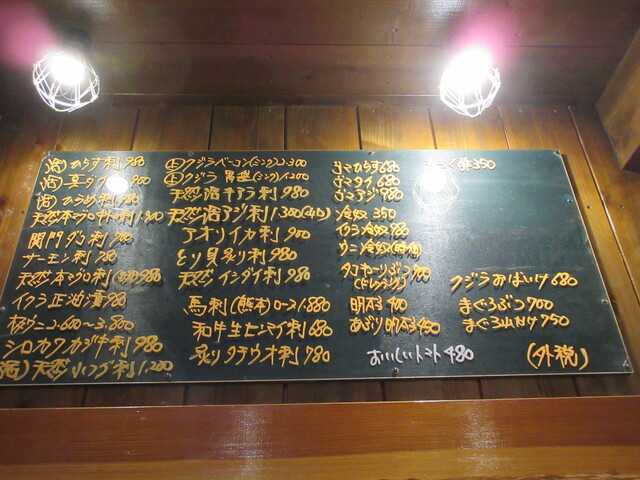 ㊙ ひらす刺 980
真ダイ 900
ひらめ刺 980
天然本マグロ中トロ刺 1.800
関門ダコ刺 900
サーモン刺 980
天然本マグロ刺 980
イクラ正油漬 980
2.600〜3.800
シロカワカジキ刺 980
天然 フグ刺 1.200
㊤クジラベーコン(ミンク) 2.300
㊤クジラ (ミンク) 1.200
天然活キアラ刺 980
天然活アジ刺 1.300
アオリイカ刺 900
とり貝炙り刺 980
天然イシダイ刺 980
馬刺(熊本)ロース 1.880
和牛生センマイ刺 680
炙りタチウオ刺 780
ゴマひらす 680
ゴマタイ 680
ゴマアジ 980
冷奴 350
イクラ冷奴 980
ウニ冷奴(時価)
タコヤーリぶつ 900
明太子 400
あぶり明太 450
おいしいトマト 480
もずく酢 350
クジラおばいけ 680
まぐろぶつ 700
まぐろ山かけ 750
(外税)